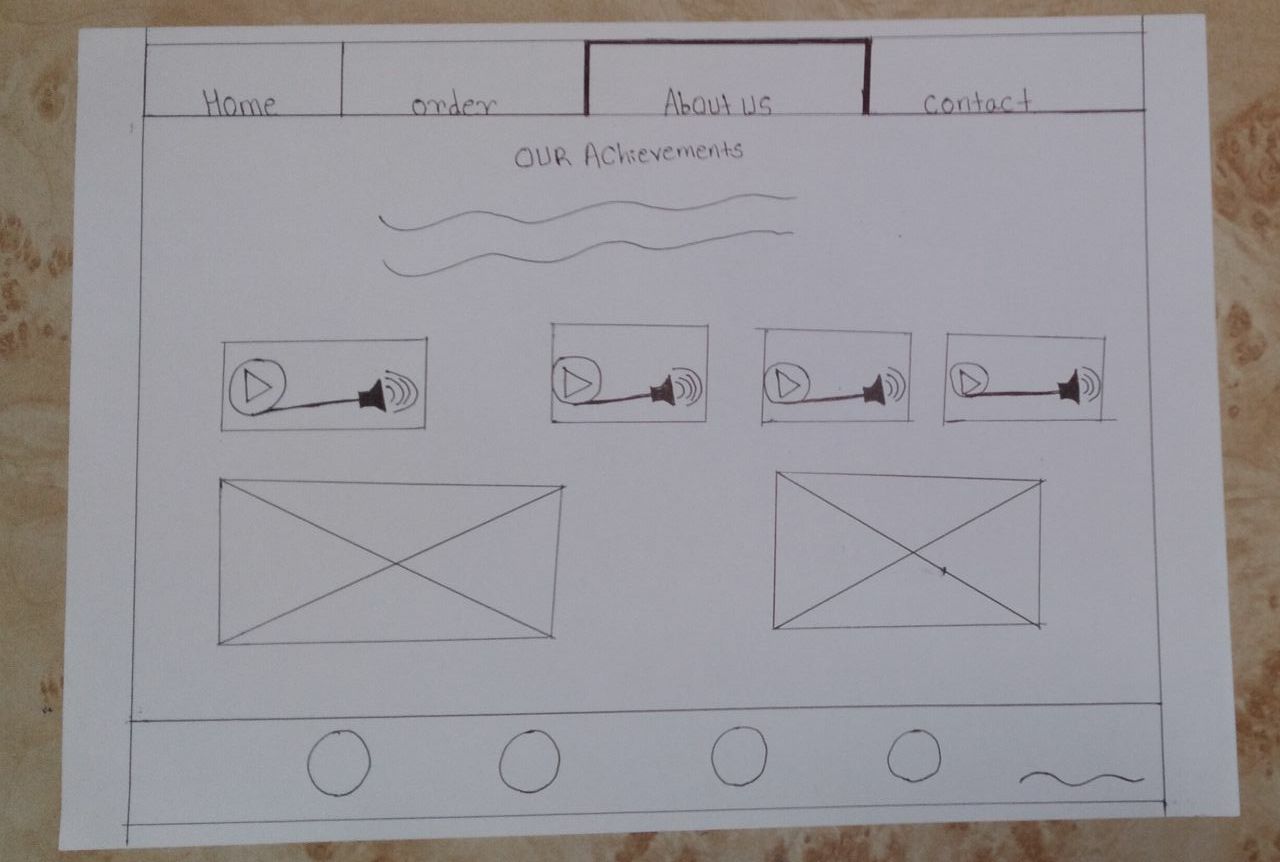 Home order About us contact
OUR AChievements